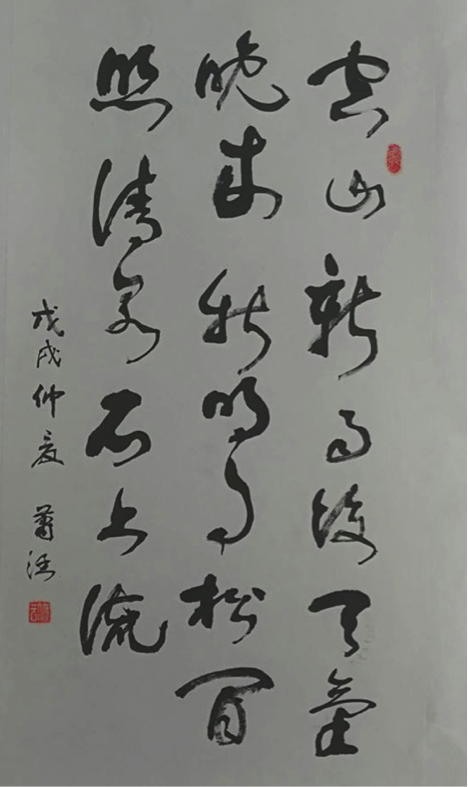 空山新雨後天氣
晚來秋明月松間
照清泉石上流
戊戌仲夏 萧